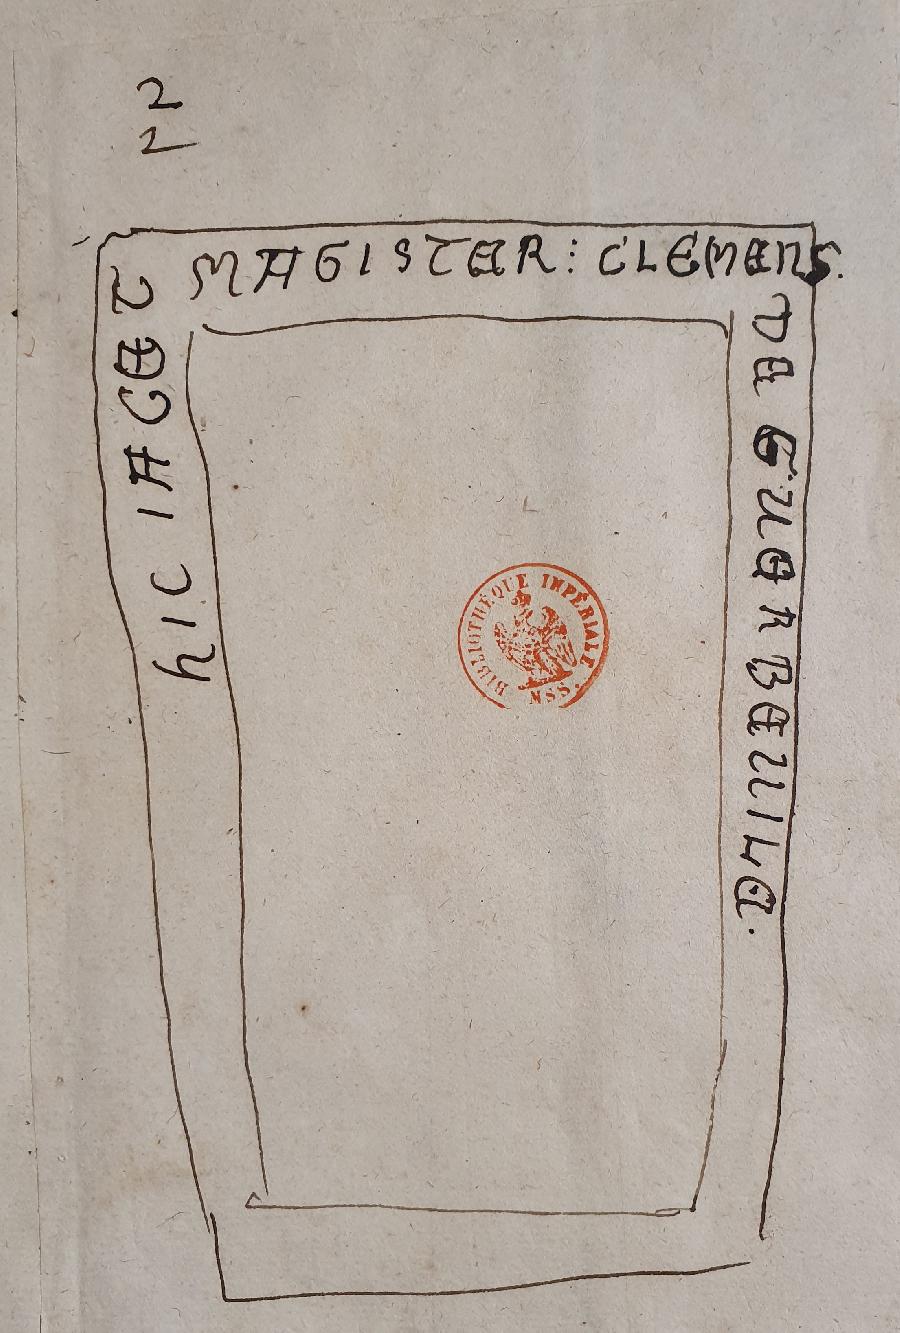 2
2
HIC IACET
MAGISTER: CLEMENS.
DE GUERBEUILE.
BIBLIOTHÈQUE IMPÉRIALE
MSS.